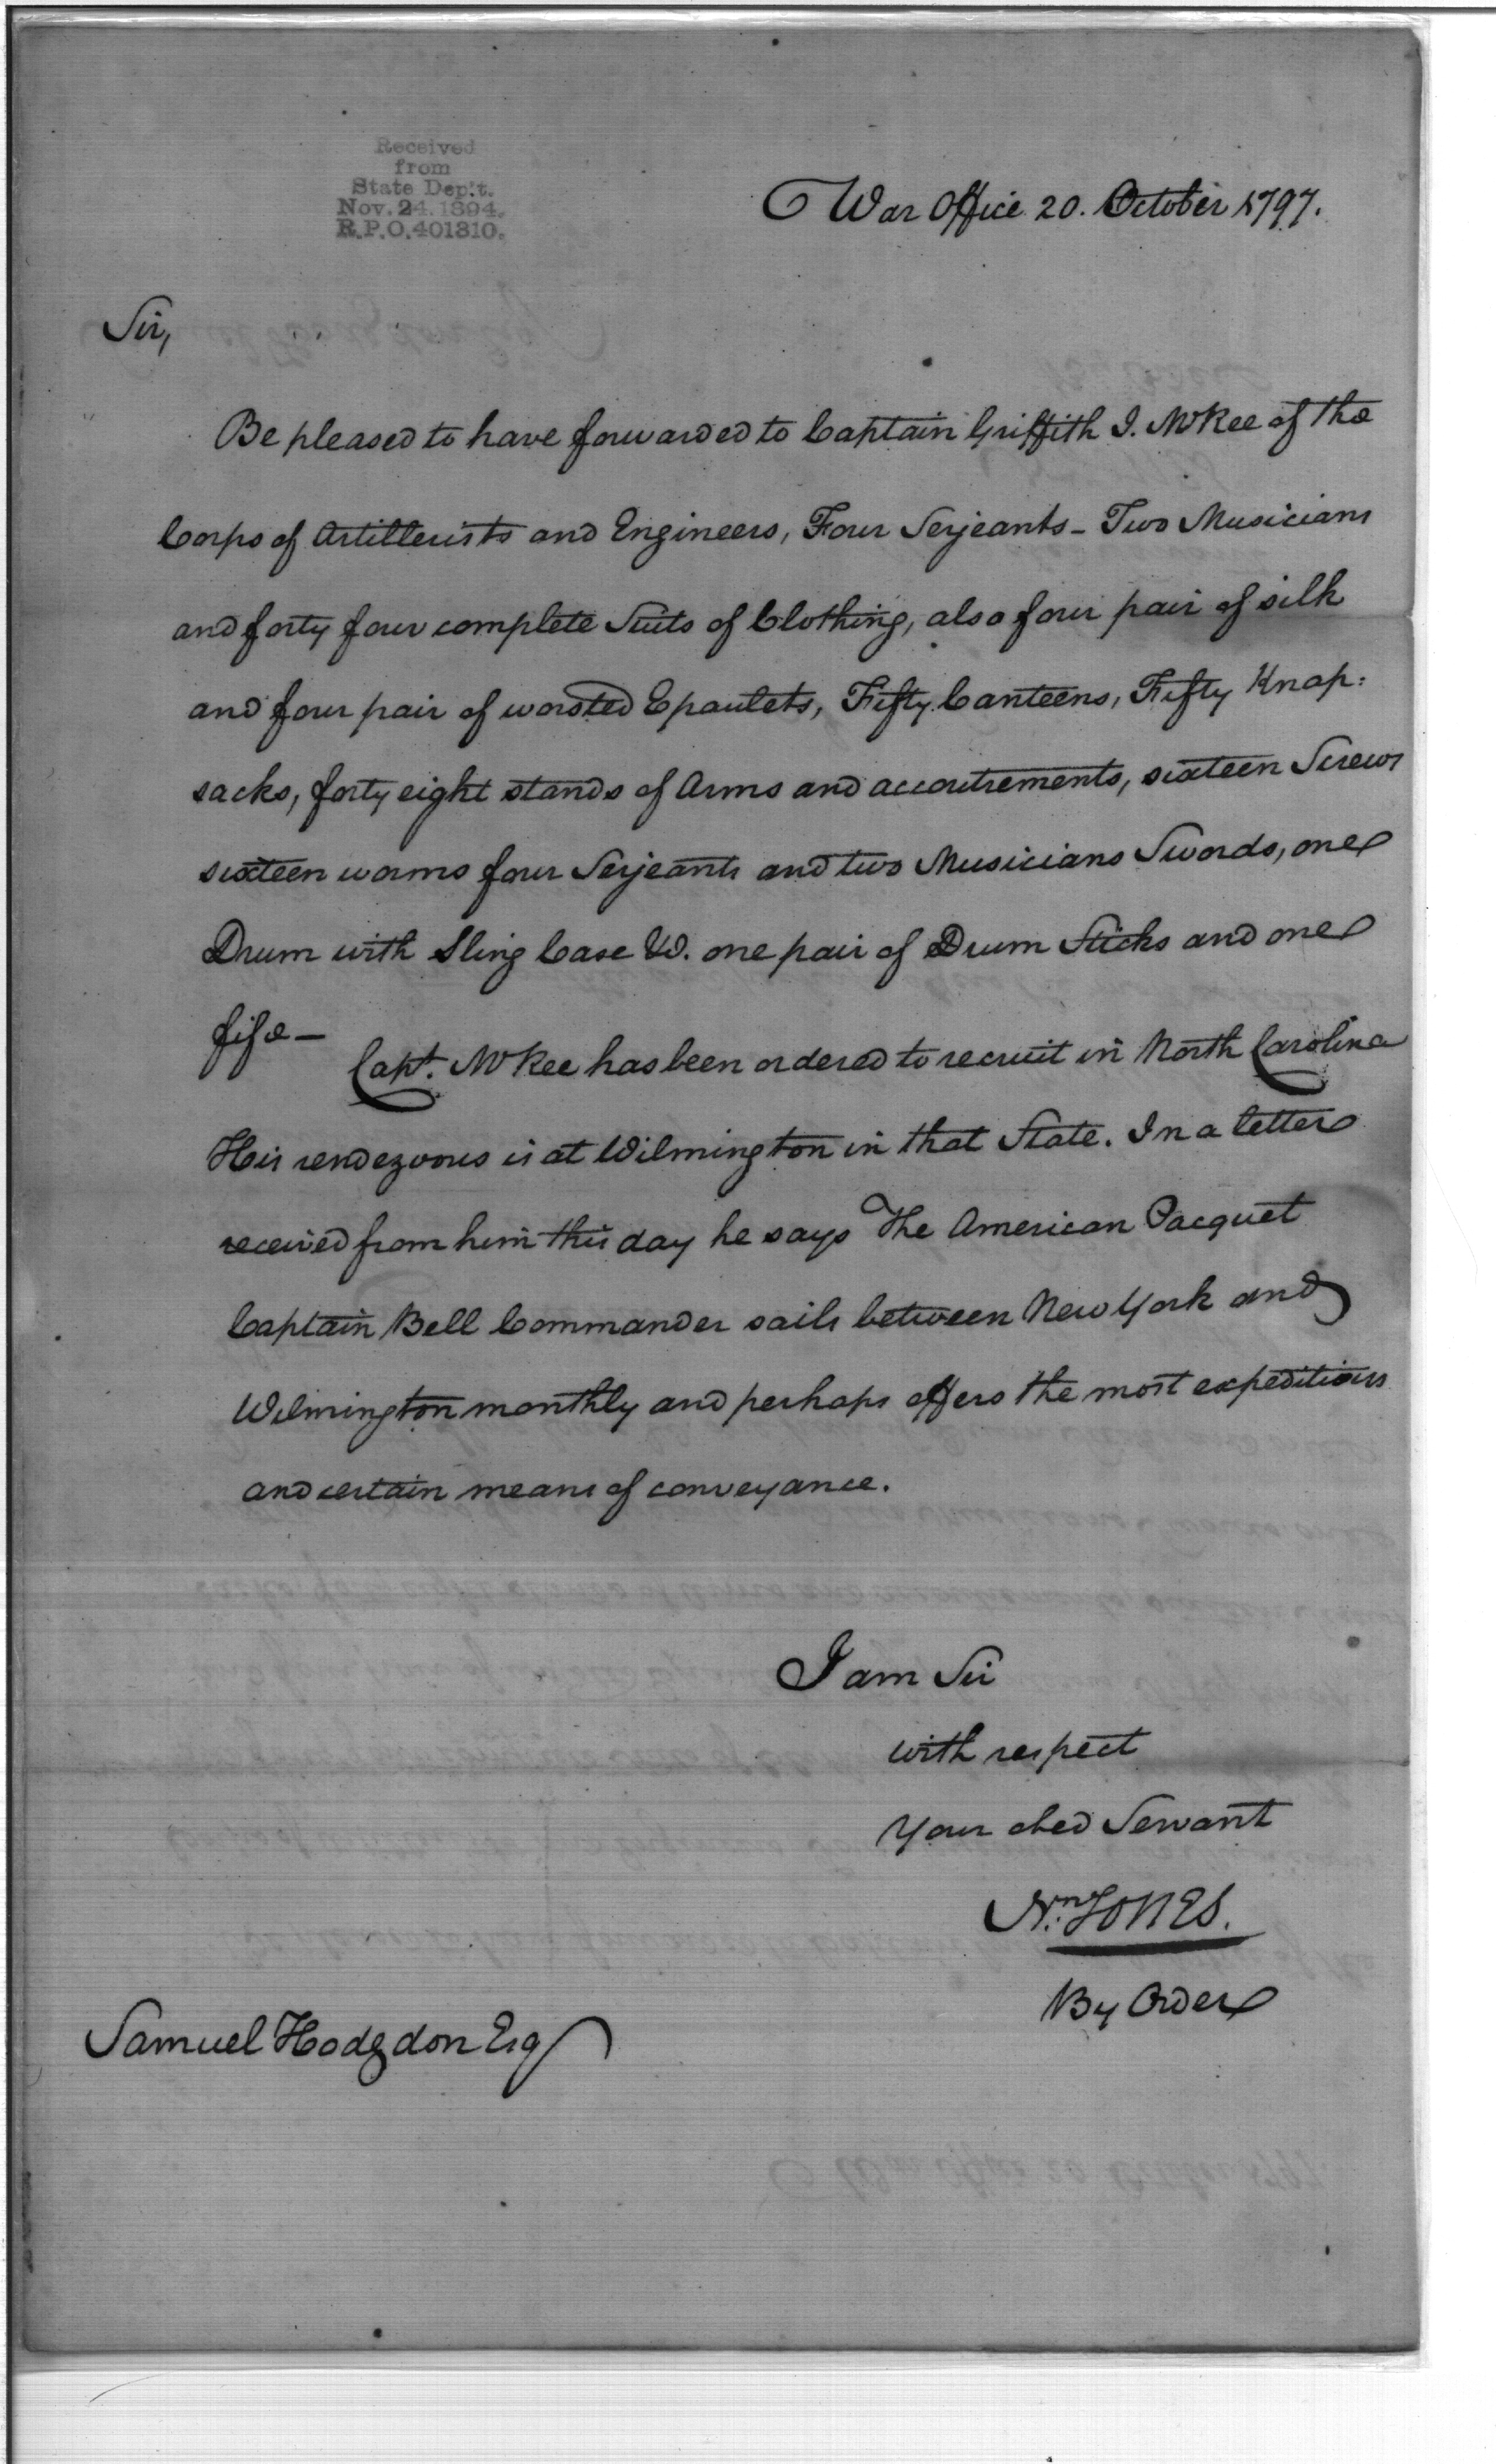 Received
from
State Dep't.
Nov. 24. 1894.
R.P.O. 401810.
War Office 20. October 1797.
Sir,
Be pleased to have forwarded to Captain Griffith J. McRee of the
Corps of Artillerists and Engineers, Four Serjeants - Two Musicians
and forty four complete Suits of Clothing, also four pair of silk
and four pair of worsted Epaulets, Fifty Canteens, Fifty Knap:
sacks, forty eight stands of Arms and accoutrements, sixteen Screws
sixteen worms four Serjeants and two Musicians Swords, one
Drum with Sling Case &c. one pair of Drum Sticks and one
fife -
Capt. McRee has been ordered to recruit in North Carolina
His rendezvous is at Wilmington in that State. In a letter
received from him this day he says The American Pacquet
Captain Bell Commander sails between New York and
Wilmington monthly and perhaps offers the most expeditious
and certain means of conveyance.
I am Sir
with respect
Your obed Servant
Nn. JONES.
By Order
Samuel Hodgdon Esq